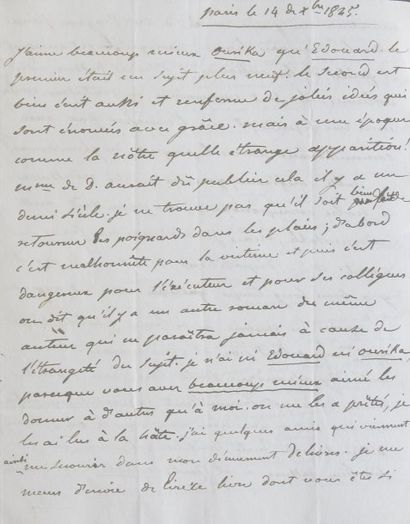 paris le 14 de Xbre 1825.
J'aime beaucoup mieux Ourika qu'Edouard. le
premier était un sujet plus neuf. le second est
bien écrit aussi et renferme de jolies idées qui
sont énoncées avec grâce. mais à une époque
comme la nôtre quelle étrange apparition!
mme de D. aurait dû publier cela il y a un
demi siècle. je ne trouve pas qu'il soit bien
retourner les poignards dans les plaies; d'abord
c'est malhonnête pour la victime et puis c'est
dangereux pour l'exécuteur et pour ses collègues
on dit qu'il y a un autre roman du même
auteur qui ne paraîtra jamais à cause de
l'étrangeté du sujet. je n'ai ni Edouard ni Ourika,
parceque vous avez beaucoup mieux aimé les
donner à d'autres qu'à moi. on me les a prêtés, je
les ai lus à la hâte. j'ai quelques amis qui viennent
ainsi me secourir dans mon dénuement de livres. je me
meurs d'envie de lire le livre dont vous êtes si